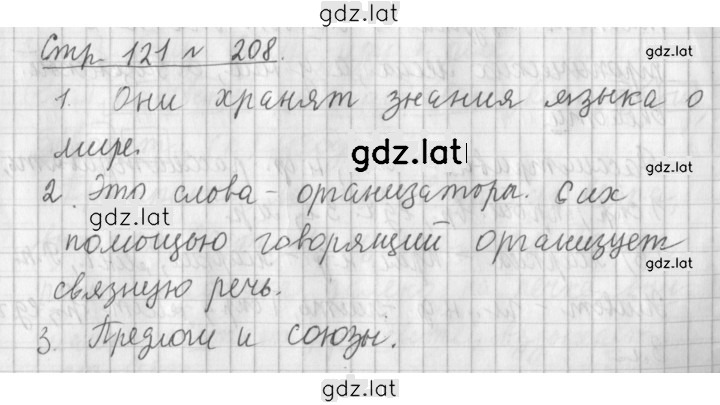 gdz.lat
Стр 121 № 208.
gdz.lat
1. Они хранят знания языка о
мире.
gdz.lat
gdz.lat
2. Это слова-организаторы. С их
gdz.lat
помощью говорящий организует
gdz.lat
связную речь.
3. Предлоги и союзы.
gdz.lat